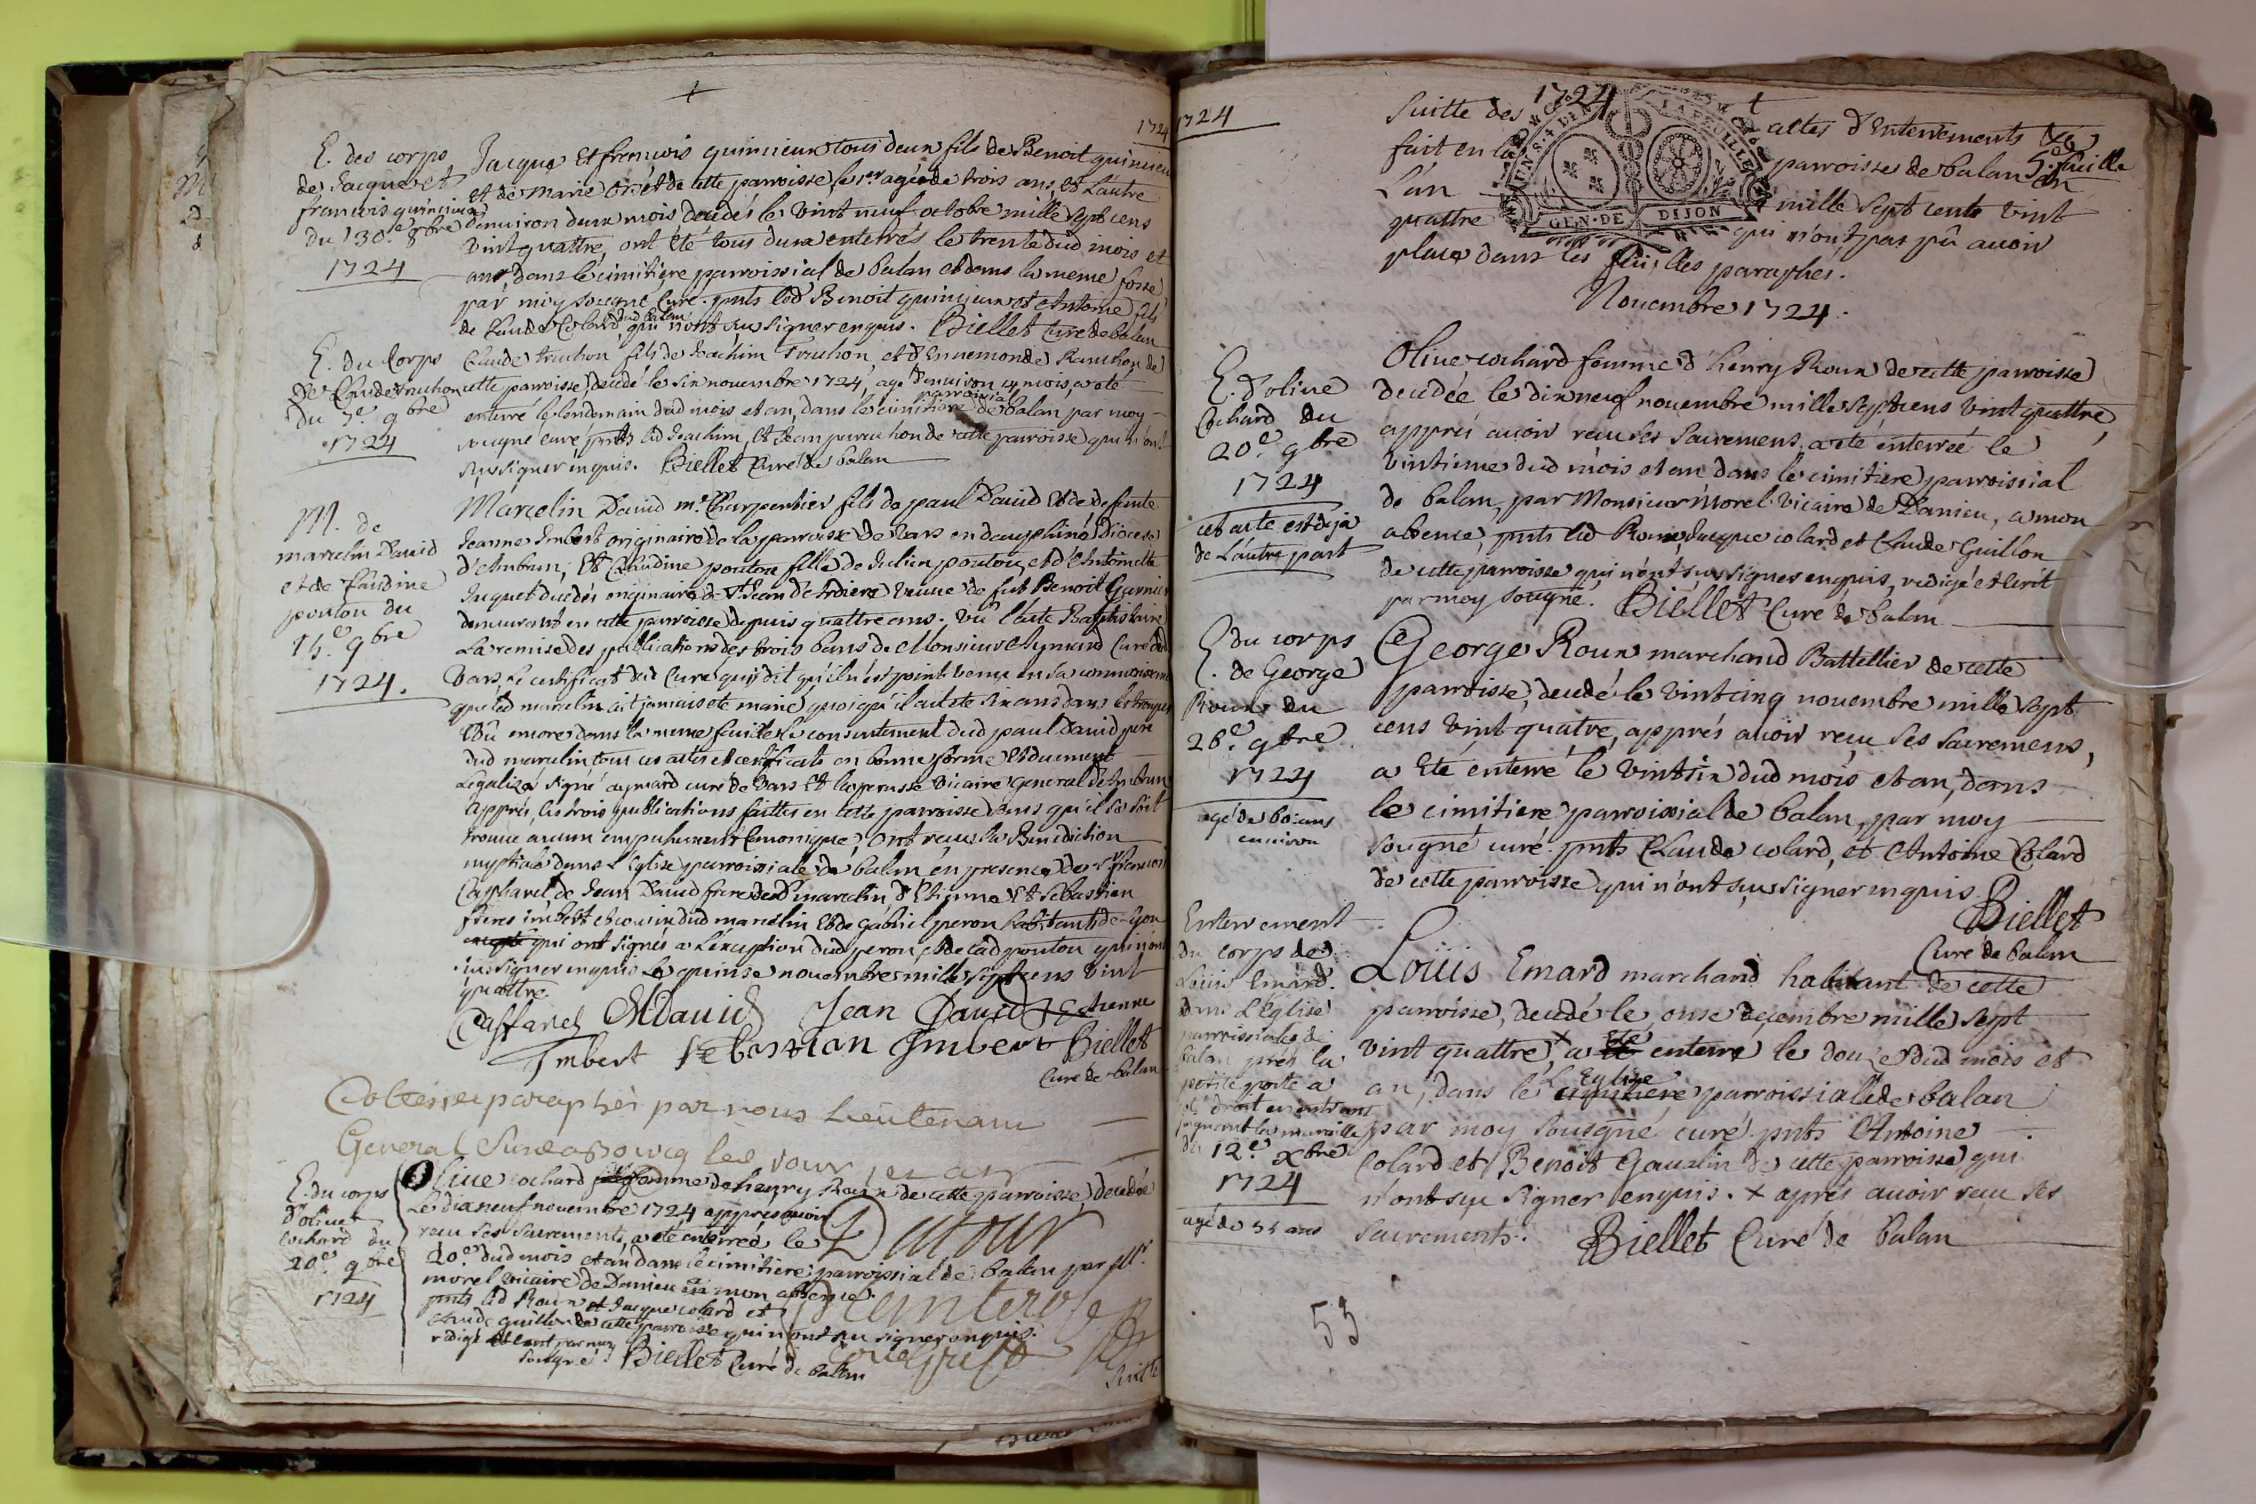 1724
E. des corps
de Jacque et
francois quinieux
du 30.e 8bre
1724
Jacque Et francois quinieux tous deux fils de Benoit quinieux
et de Marie de cette parroisse le 1er agé de trois ans, et L'autre
denviron deux mois decedés le vint neuf octobre mille sept cens
vint quattre, ont été tous deux enterrés le trente dud mois et
an, dans le cimitiere parroissial de balan et dans la meme fosse
par moy sousgné Curé. pnts led Benoit quinieux et Antoine fils
de Claude Colard dud balan qui n'ont sus signer enquis. Biellet Curé de balan
E. du Corps
De Claude truchon
du 7.e 9bre
1724
Claude truchon fils de Joachim Truchon, et d'Ennemonde Ranchon de
cette parroisse, decedé le six novembre 1724, agé denviron 4 mois, a eté
enterré le lendemain dud mois et an, dans le cimitiere parroissial de balan par moy
sougné curé pnts led Joachim, et Jean truchon de cette parroisse qui n'ont
sus signer enquis. Biellet Curé de balan
M. de
marcelin David
et de Claudine
pouton du
15.e 9bre
1724.
Marcelin David m.e Charpentier fils de paul David et de defunte
Jeanne Imbert originaire de la parroisse de Vars en dauphiné Diocese
d'Ambrun; Et Claudine pouton fille de Julien pouton et d'Antoinette
Juquet decedés originaire de St Jean d'Ardiere veuve de fut Benoit Garnier
demeurant en cette parroisse depuis quattre ans. vû l'acte Baptistaire
La remise des publications des trois bans de Monsieur Aymard Curé dud
Vars, le certificat dud Curé qui dit qu'il n'est point venu en sa connoissance
que led marcelin ait jamais eté marié quoi qu'il ait eté six ans dans les troupes
Vû encore dans la meme fueille le consentement dud paul David pere
dud marcelin tous ces actes et certificats en bonne forme et duement
Legalizés signé aymard curé de Vars et laperusse vicaire General de Ambrun
Apprés, les trois publications faittes en cette parroisse sans qu'il se soit
trouvé aucun empechement Canonique; ont recu la Benediction
nuptiale dans l'Eglise parroissiale de balan en presence de sr francois
Caffarel de Jean David frere dud marcelin, d'Etienne et Sebastien
freres imbert et cousin dud marcelin et de Gabriel peron habitants de Lyon
qui ont signés a L'exception dud peron, et de lad pouton qui n'ont
sus signer enquis Le quinse novembre mille sept cens vint
quattre.
Caffarel MDavid Jean David Etienne
Imbert sebastian Imbert Biellet
Curé de balan
Cottés, et paraphés par nous Lieutenant
General Susd a bourg les jour et an
E. du corps
d'olive
cochard du
20.e 9bre
1724
Olive cochard femme de henry Roux de cette parroisse, decedée
Le dixneuf novembre 1724 appres avoir
recu ses sacrements, a eté enterrée le
20.e dud mois et an dans le cimitiere parroissial de balan par Mr.
morel vicaire de Danieu en mon absence.
pnts led Roux et Jacque colard et
claude guillon de cette parroisse qui n'ont sus signer enquis.
redigé et ecrit par moy
sougné Biellet Curé de balan
Suitte
1724
1724
Suitte des actes d'Enterrements
5.e feuille
fait en la parroisse de balan en
L'an mille sept cents vint
quattre qui n'ont pas pû avoir
place dans les fueilles paraphés.
GEN·DE DIJON
Novembre 1724.
E. D'olive
Cochard du
20.e 9bre
1724
cet acte est deja
de L'autre part
Olive, cochard femme d'henry Roux de cette parroisse
decedée le dixneuf novembre mille Sept cens vint quattre,
apprés avoir recu les Sacremens, a eté enterrée le
vintieme dud mois et an dans le cimitiere parroissial
de balan, par Monsieur Morel Vicaire de Danieu, a mon
absence, pnts led Roux, Jacque colard et Claude Guillon
de cette parroisse qui n'ont sus signer enquis, redigé et ecrit
par moy sougné. Biellet Curé de balan
E. du corps
de George
Roux du
26.e 9bre
1724
agé de 60 ans
environ
George Roux marchand Battellier de cette
parroisse, decedé le vint cinq novembre mille sept
cens vint quatre, apprés avoir reçu ses sacremens,
a eté enterré le vintsix dud mois et an, dans
le cimitiere parroissial de balan, par moy
sougné curé. pnts Claude colard, et Antoine Colard
de cette parroisse qui n'ont sus signer enquis
Biellet
Curé de balan
Enterrement
du corps de
Loüis Emard.
dans L'Eglise
parroissiale de
balan prés la
petite porte a
droit en entrant
joignant la muraille
du 12.e Xbre
1724
agé de 55 ans
Loüis Emard marchand habitant de cette
parroisse, decedé le onse decembre mille sept
vint quattre, + a eté enterré le douze dud mois et
an, dans l'Eglise cimitiere parroissiale de balan
par moy sousgné curé. pnts Antoine
Colard et Benoit Gauzlin de cette parroisse qui
n'ont sçu signer enquis. + aprés avoir recu ses
sacrements. Biellet Curé de balan
53